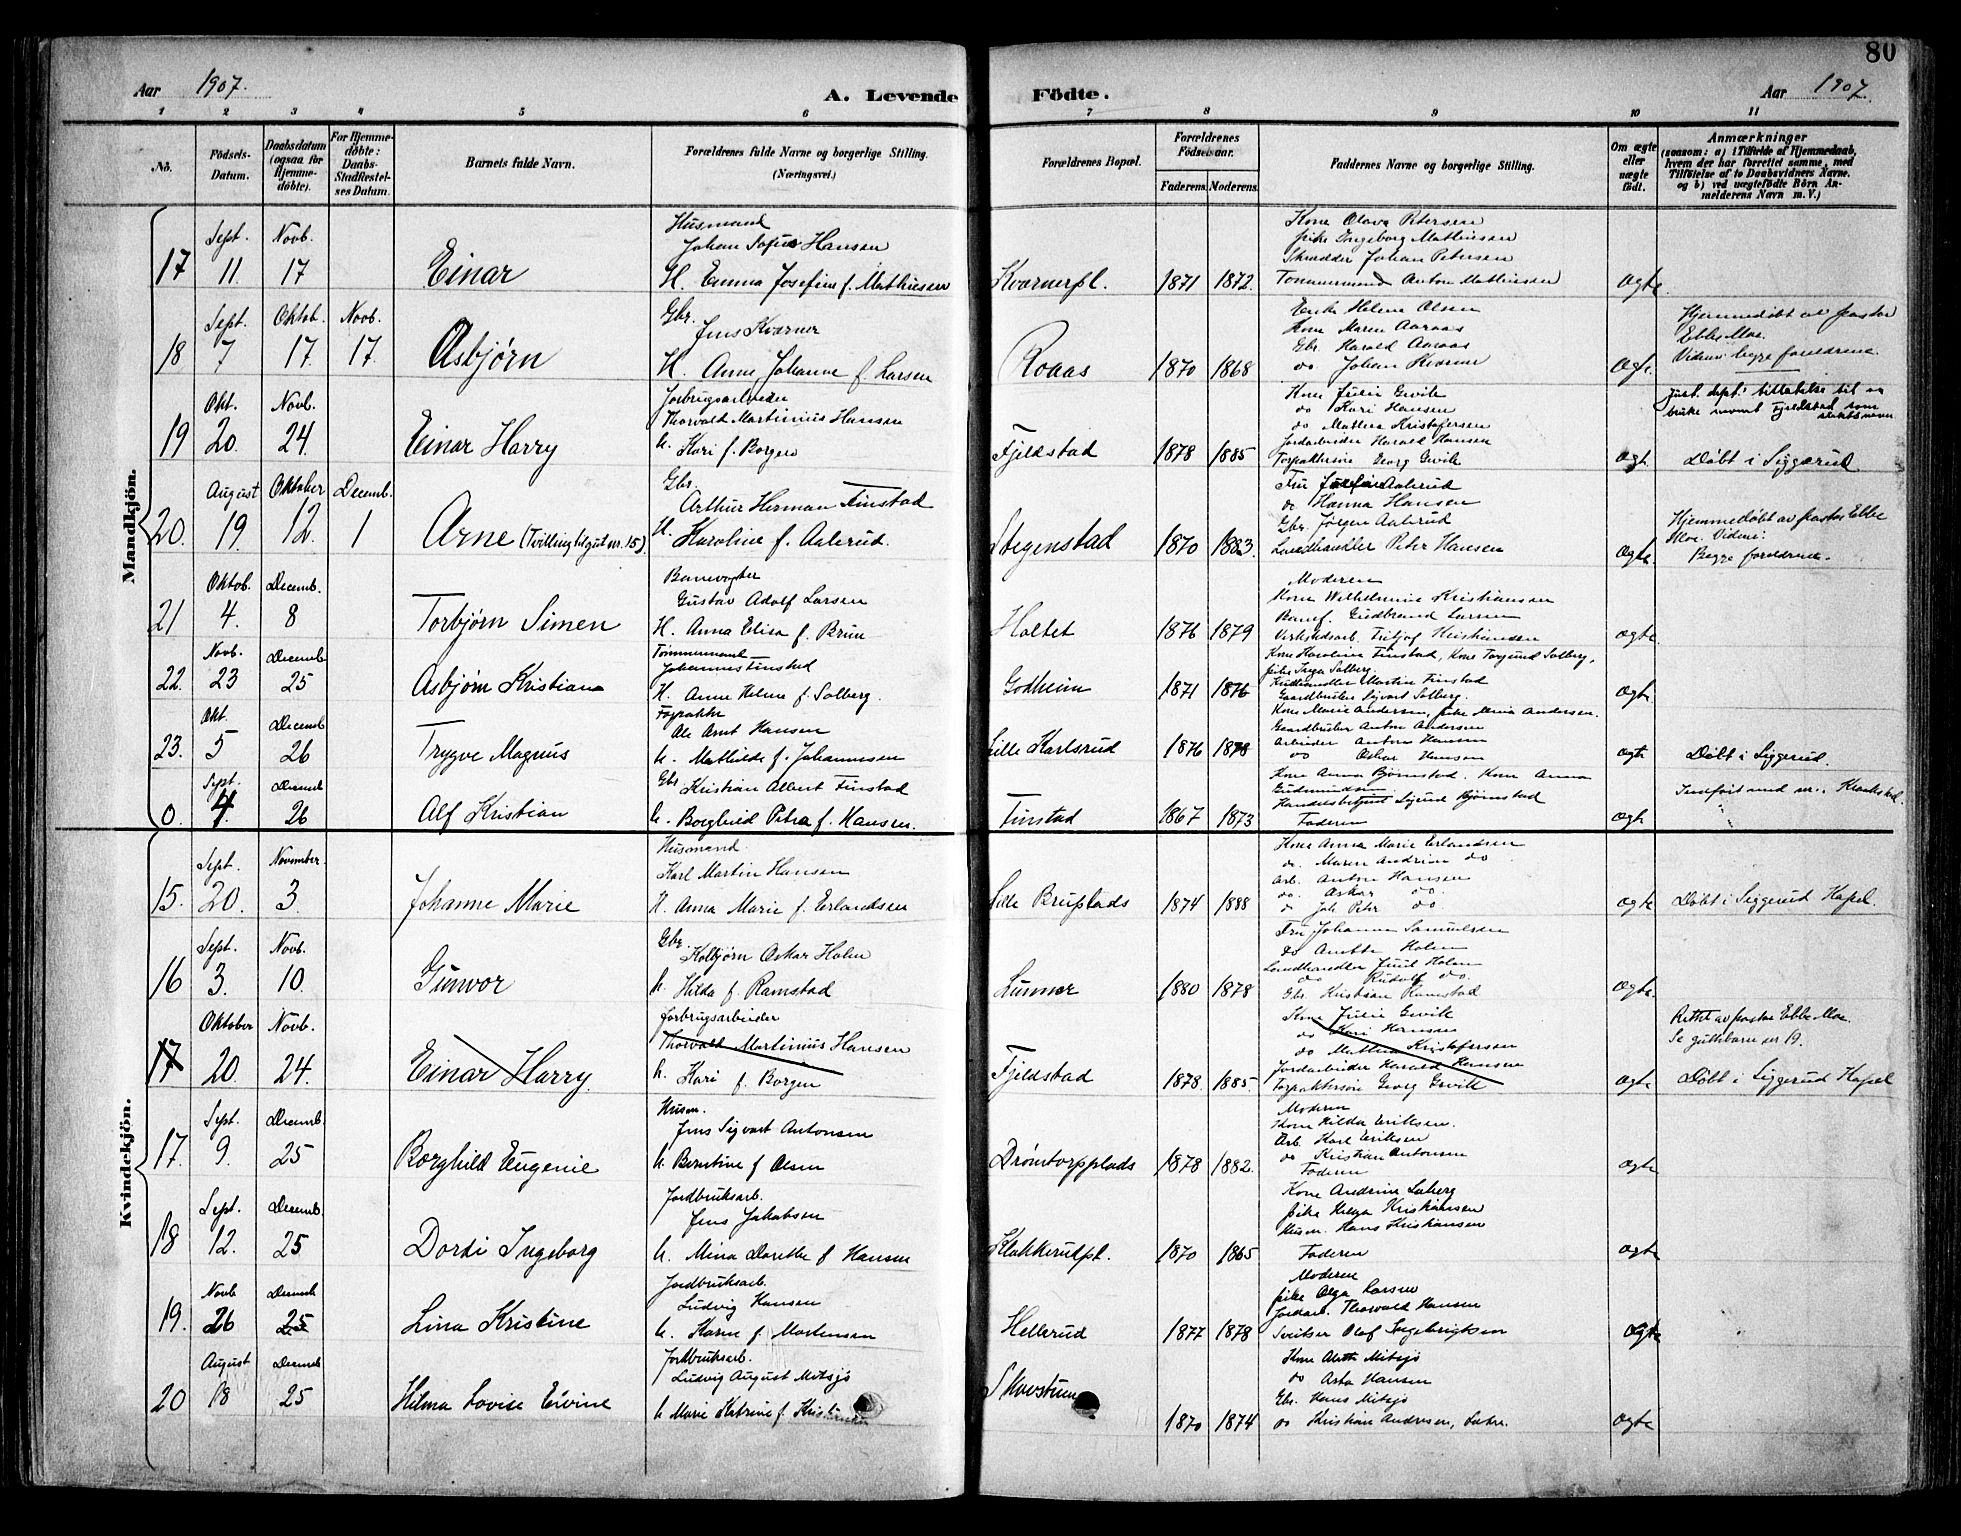 80
Aar 1907.
A. Levende Födte.
Aar 1907.
1 2 3 4 5 6 7 8 9 10 11
No.
Födsels-Datum.
Daabsdatum (ogsaa for Hjemme-döbte).
For Hjemme-döbte: Daabs-Stadfæstel-ses Datum.
Barnets fulde Navn.
Forældrenes fulde Navne og borgerlige Stilling. (Næringsvei.)
Forældrenes Bopæl.
Forældrenes Födselsaar.
Faderens. Moderens.
Faddernes Navne og borgerlige Stilling.
Om ægte eller uægte födt.
Anmærkninger
(saasom: a) i Tilfælde af Hjemmedaab, hvem der har forrettet samme, med Tilföielse af to Daabsvidners Navne. og b) ved uægtefödte Börn An-melderens Navn m. V.)
Mandkjön.
17
Sept. 11
Novb. 17
Einar
Husmand
Johan Sofus Hansen
H. Emma Josefine f. Mathiesen
Kværnerpl.
1871 1872.
Kone Olava Petersen
pike Ingeborg Mathiesen
Skrædder Johan Petersen
Tømmermand Anton Mathiesen
ægte.
18
Sept. 7
Oktob. 17.
Novb. 17.
Asbjørn
Gbr.
Jens Kværner
H. Anne Johanne f. Larsen
Roaas
1870 1868
Enke Helene Olsen
Kone Maren Aaraas
Gbr. Harald Aaraas
do Johan Kværner
ægte.
Hjemmedøbt av pastor
Ebbe Moe.
Vidner begge forældrene.
19
Okt. 20.
Novb. 24.
Einar Harry
Jorbrugsarbeider
Thorvald Martinius Hansen
h. Kari f. Borgen
Fjeldstad
1878 1885
Kone Julie Gevik
do Kari Hansen
do Mathea Kristofersen
Jordarbeider Harald Hansen
Forpaktersøn Georg Gevik
ægte
Just. dept.s tilladelse til at
bruke navnet Fjeldstad som
slektsnavn
Døbt i Siggerud
20.
August 19.
Oktober 12.
Decemb. 1
Arne (Tvilling til gut nr. 15).
Gbr.
Arthur Herman Finstad
H. Karoline f. Aalerud.
Stegenstad
1870 1883.
Fru Josefine Aalerud
do Hanna Hansen
Gbr. Jørgen Aalerud
Landhandler Peter Hansen
ægte.
Hjemmedøbt av pastor Ebbe
Moe. Vidner:
Begge forældrene.
21
Oktob. 4.
Decemb. 8
Torbjørn Simen
Banevogter
Gustav Adolf Larsen
H. Anna Elisa f. Brun
Holtet
1876 1879
Moderen
Kone Wilhelmine Kristiansen
Banef. Gudbrand Larsen
Verkstedsarb. Fritjof Kristiansen
ægte
22.
Novb. 23
Decemb 25
Asbjørn Kristian
Tømmermand
Johannes Finstad
H. Anne Helene f. Solberg.
Godheim
1871 1876
Kone Karoline Finstad, Kone Torgund Solberg,
pike Inga Solberg.
Martin Finstad
Gaardbruker Sigvart Solberg.
ægte
23.
Okt. 5
Decemb 26
Trygve Magnus
Forpakter
Ole Arnt Hansen
h. Mathilde f. Johannesen
Lille Karlsrud
1876 1878
Kone Marie Andersen, pike Andersen.
Gaardbruker Anton Andersen
Arbeider Anton Hansen
do Oskar Hansen
ægte
Døbt i Siggerud.
0.
Sept. 4.
Decemb 26
Alf Kristian
Gbr. Kristian Albert Finstad
h. Borghild Petra f. Hansen.
Finstad
1867 1873
Kone Anna Bjørnstad. Kone Anna
Gudmundsen
Sigurd Bjørnstad
Faderen
ægte
Indført med nr. i Kraakstad.
Kvindekjön.
15.
Sept. 20.
November 3.
Johanne Marie
Husmand.
Karl Martin Hansen
H. Anna Marie f. Erlandsen
Bruplads
1874 1888
Kone Anna Marie Erlandsen
do. Maren Andrine do
Arb. Anton Hansen
do. Oskar do.
do Joh. Peter do.
ægte
Døbt i Siggerud Kapel.
16
Sept. 3.
Novb. 10.
Gunvor
Gbr.
Kolbjørn Oskar Holm
h. Hilda f. Ramstad
Lunner
1880 1878
Fru Johanne Samuelsen
do Anette Holm
Landhandler Juul Holm
do Rudolf do.
Gbr. Kristian Ramstad
ægte.
17
Oktober 20.
Novb. 24.
Einar Harry
Jorbrugsarbeider
Thorvald Martinius Hansen
h. Kari f. Borgen
Fjeldstad
1878. 1885.
Kone Julie Gevik
do Kari Hansen
do Mathea Kristofersen
Jordarbeider Harald Hansen
Forpaktersøn Georg Gevik
ægte
Rettet av pastor Ebbe Moe.
Se guttebarn nr 19.
Døbt i Siggerud Kapel
17.
Sept. 9.
Decemb. 25
Borghild Eugenie
Husm.
Jens Sigvart Antonsen
h. Berntine f Olsen
Drömtorpplads
1878 1882.
Moderen
Kone Hilda Eriksen.
Arb. Karl Eriksen
do Kristian Antonsen
Faderen
ægte
18
Sept. 12.
Decemb. 25
Dordi Ingeborg
Jordbruksarb.
Jens Jakobsen
h. Mina Dorethe f Hansen
Klokkerudpl.
1870 1865
Kone Andrine Saberg
pike Helga Kristiansen
Husm. Hans Kristiansen
Faderen
ægte
19.
Novb 26
Decemb 25
Lina Kristine
Jordbruksarb.
Ludvig Hansen
h. Karen f. Mortensen
Hellerud
1877 1878
Moderen
pike Olga Larsen
Jordarb. Thorvald Hansen
Sveitser Olaf Ingebrigtsen
ægte
20
August 18
Decemb 25
Hilma Lovise Ervine
Jordbruksarb.
Ludvig August Mitsjø
h. Marie Katrine f. Kristiansen
Skovstuen
1870 1874
Kone Alette Mitsjø
do Asta Hansen
Gbr. Hans Mitsjø
do Kristian Andresen,
ægte